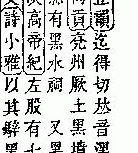 迄得切
貢兖州厥土黑墳
有黑水祠又黑
高帝紀左股有七
詩小雅以其騂黑